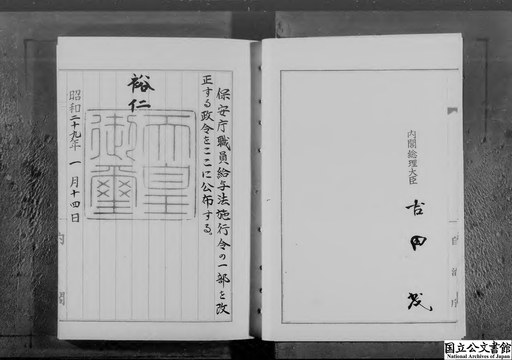 内閣総理大臣
吉田茂
保安庁職員給与法施行令の一部を改
正する政令をここに公布する。
裕仁
天皇
御璽
昭和二十九年一月十四日
内閣
国立公文書館
National Archives of Japan